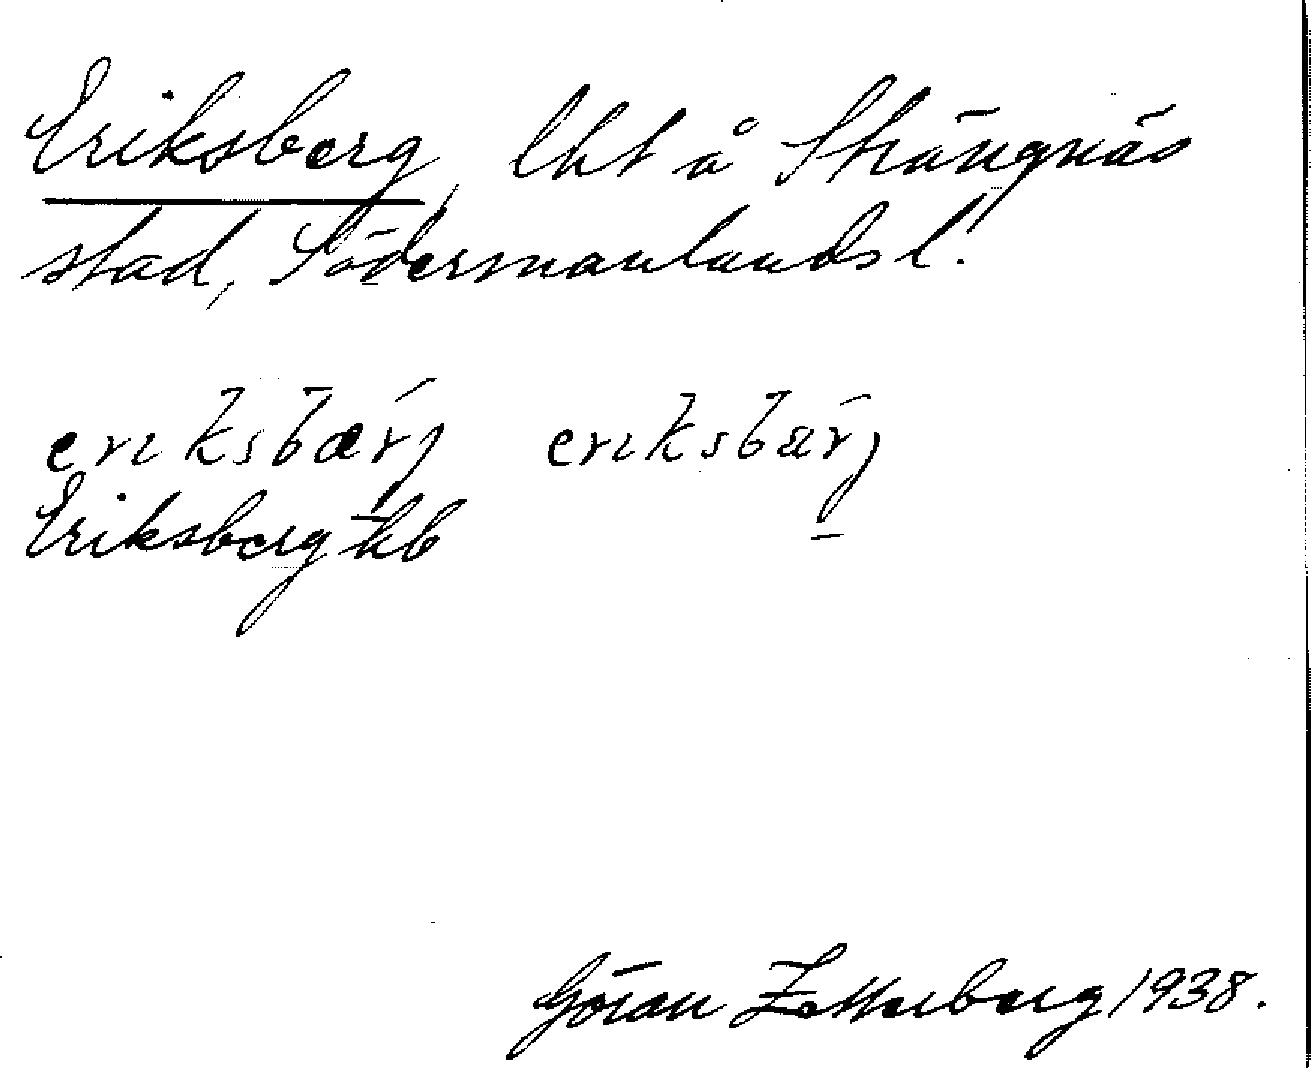 Eriksberg, lht å Strängnäs
stad, Södermanlands l.
eriksbærj eriksbærj
Eriksberg hb
Göran Zetterberg 1938.